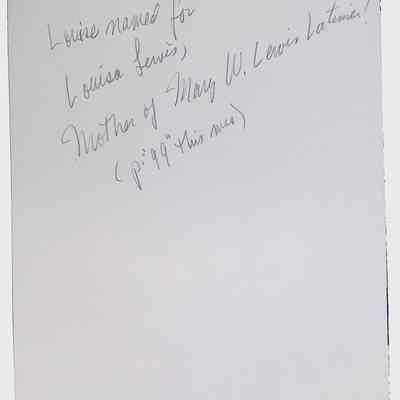 Louise named for
Louisa Lewis,
Mother of Mary W. Lewis Latimer!
(p. "99" this